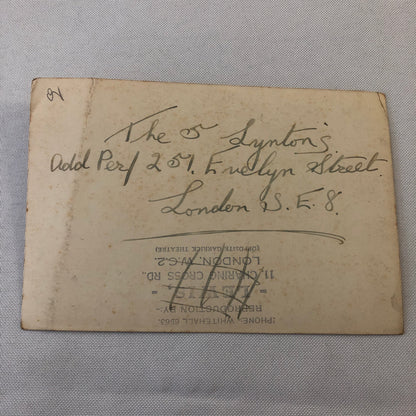 The 5 Lynton's
Add Per/ 257. Evelyn Street.
London S.E. 8.
(OPPOSITE GARRICK THEATRE)
LONDON, W.C.2.
11, CHARING CROSS RD.,
REPRODUCTION BY:-
'PHONE: WHITEHALL 6963.